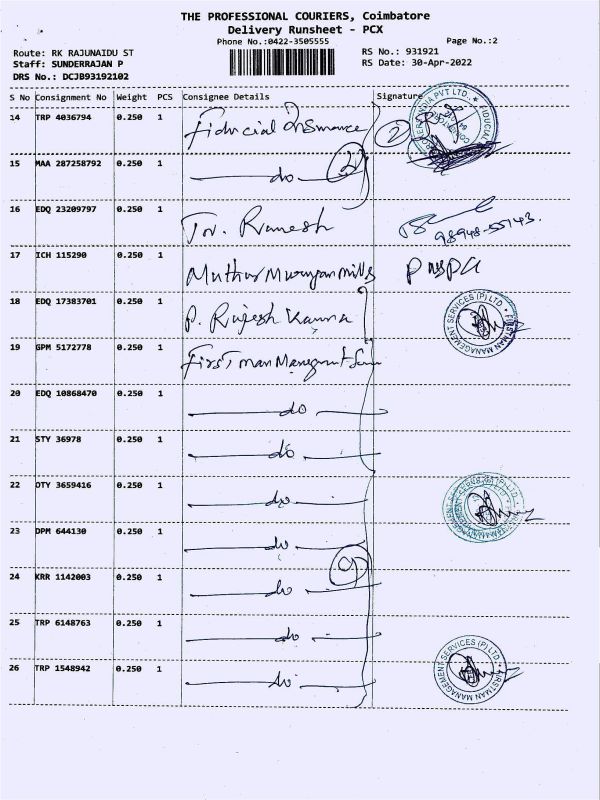 THE PROFESSIONAL COURIERS, Coimbatore
Delivery Runsheet - PCX
Phone No.:0422-3505555
Page No.:2
Route: RK RAJUNAIDU ST
RS No.: 931921
Staff: SUNDERRAJAN P
RS Date: 30-Apr-2022
DRS No.: DCJB93192102
S No Consignment No Weight PCS Consignee Details Signature
14 TRP 4036794 0.250 1 Fiducial Insurance 2
15 MAA 287258792 0.250 1 do
16 EDQ 23209797 0.250 1 Tv. Ramesh
17 ICH 115290 0.250 1 Muthu Murugan mills
18 EDQ 17383701 0.250 1 P. Rajesh Kanna
FIRSTMAN MANAGEMENT SERVICES (P) LTD.
19 GPM 5172778 0.250 1 First man Management
20 EDQ 10868470 0.250 1 do
21 STY 36978 0.250 1 do
22 OTY 3659416 0.250 1 do
23 DPM 644130 0.250 1 do
9
24 KRR 1142003 0.250 1 do
25 TRP 6148763 0.250 1 do
26 TRP 1548942 0.250 1 do
FIRSTMAN MANAGEMENT SERVICES (P) LTD.